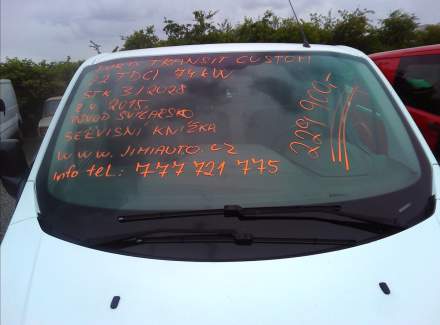 TRANSIT CUSTOM
2.2 TDCI 74 kW
STK 3/2028
R.V. 2015.
PŮVOD ŠVÝCARSKO
SERVISNÍ KNÍŽKA
www.JIMIAUTO.CZ
info tel.: 777 721 775
229 900,-